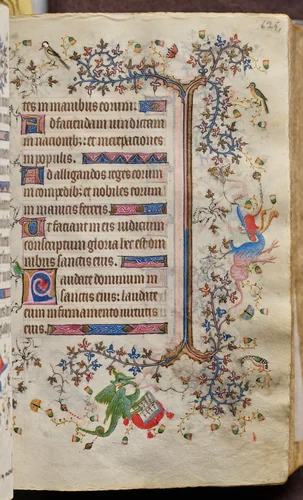 625
tes in manibus eorum:
Ad faciendam vindictam
in nacionib: et increpaciones
in populis.
Ad alligandos reges eorum
in compedib: et nobiles eorum
in manicis ferreis.
Ut faciant in eis iudicium
conscriptum gloria hec est om
nibus sanctis eius.
Laudate dominum in
sanctis eius: laudate
eum in firmamento virtutis
eius.